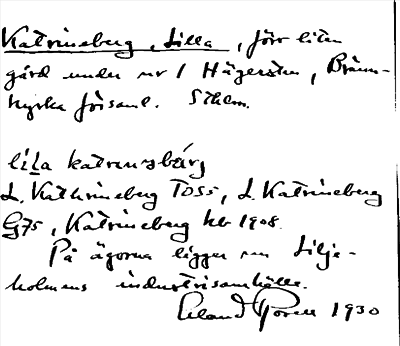 Katrineberg, Lilla, förr liten
gård under nr 1 Hägersten, Bränn-
kyrka församl. Sthlm.
lila katrinəbärj
L. Kathrineberg TOSS, L. Katrineberg
G75, Katrineberg kb 1908.
På ägorna ligger nu Lilje-
holmens industrisamhälle.
Erland 1930